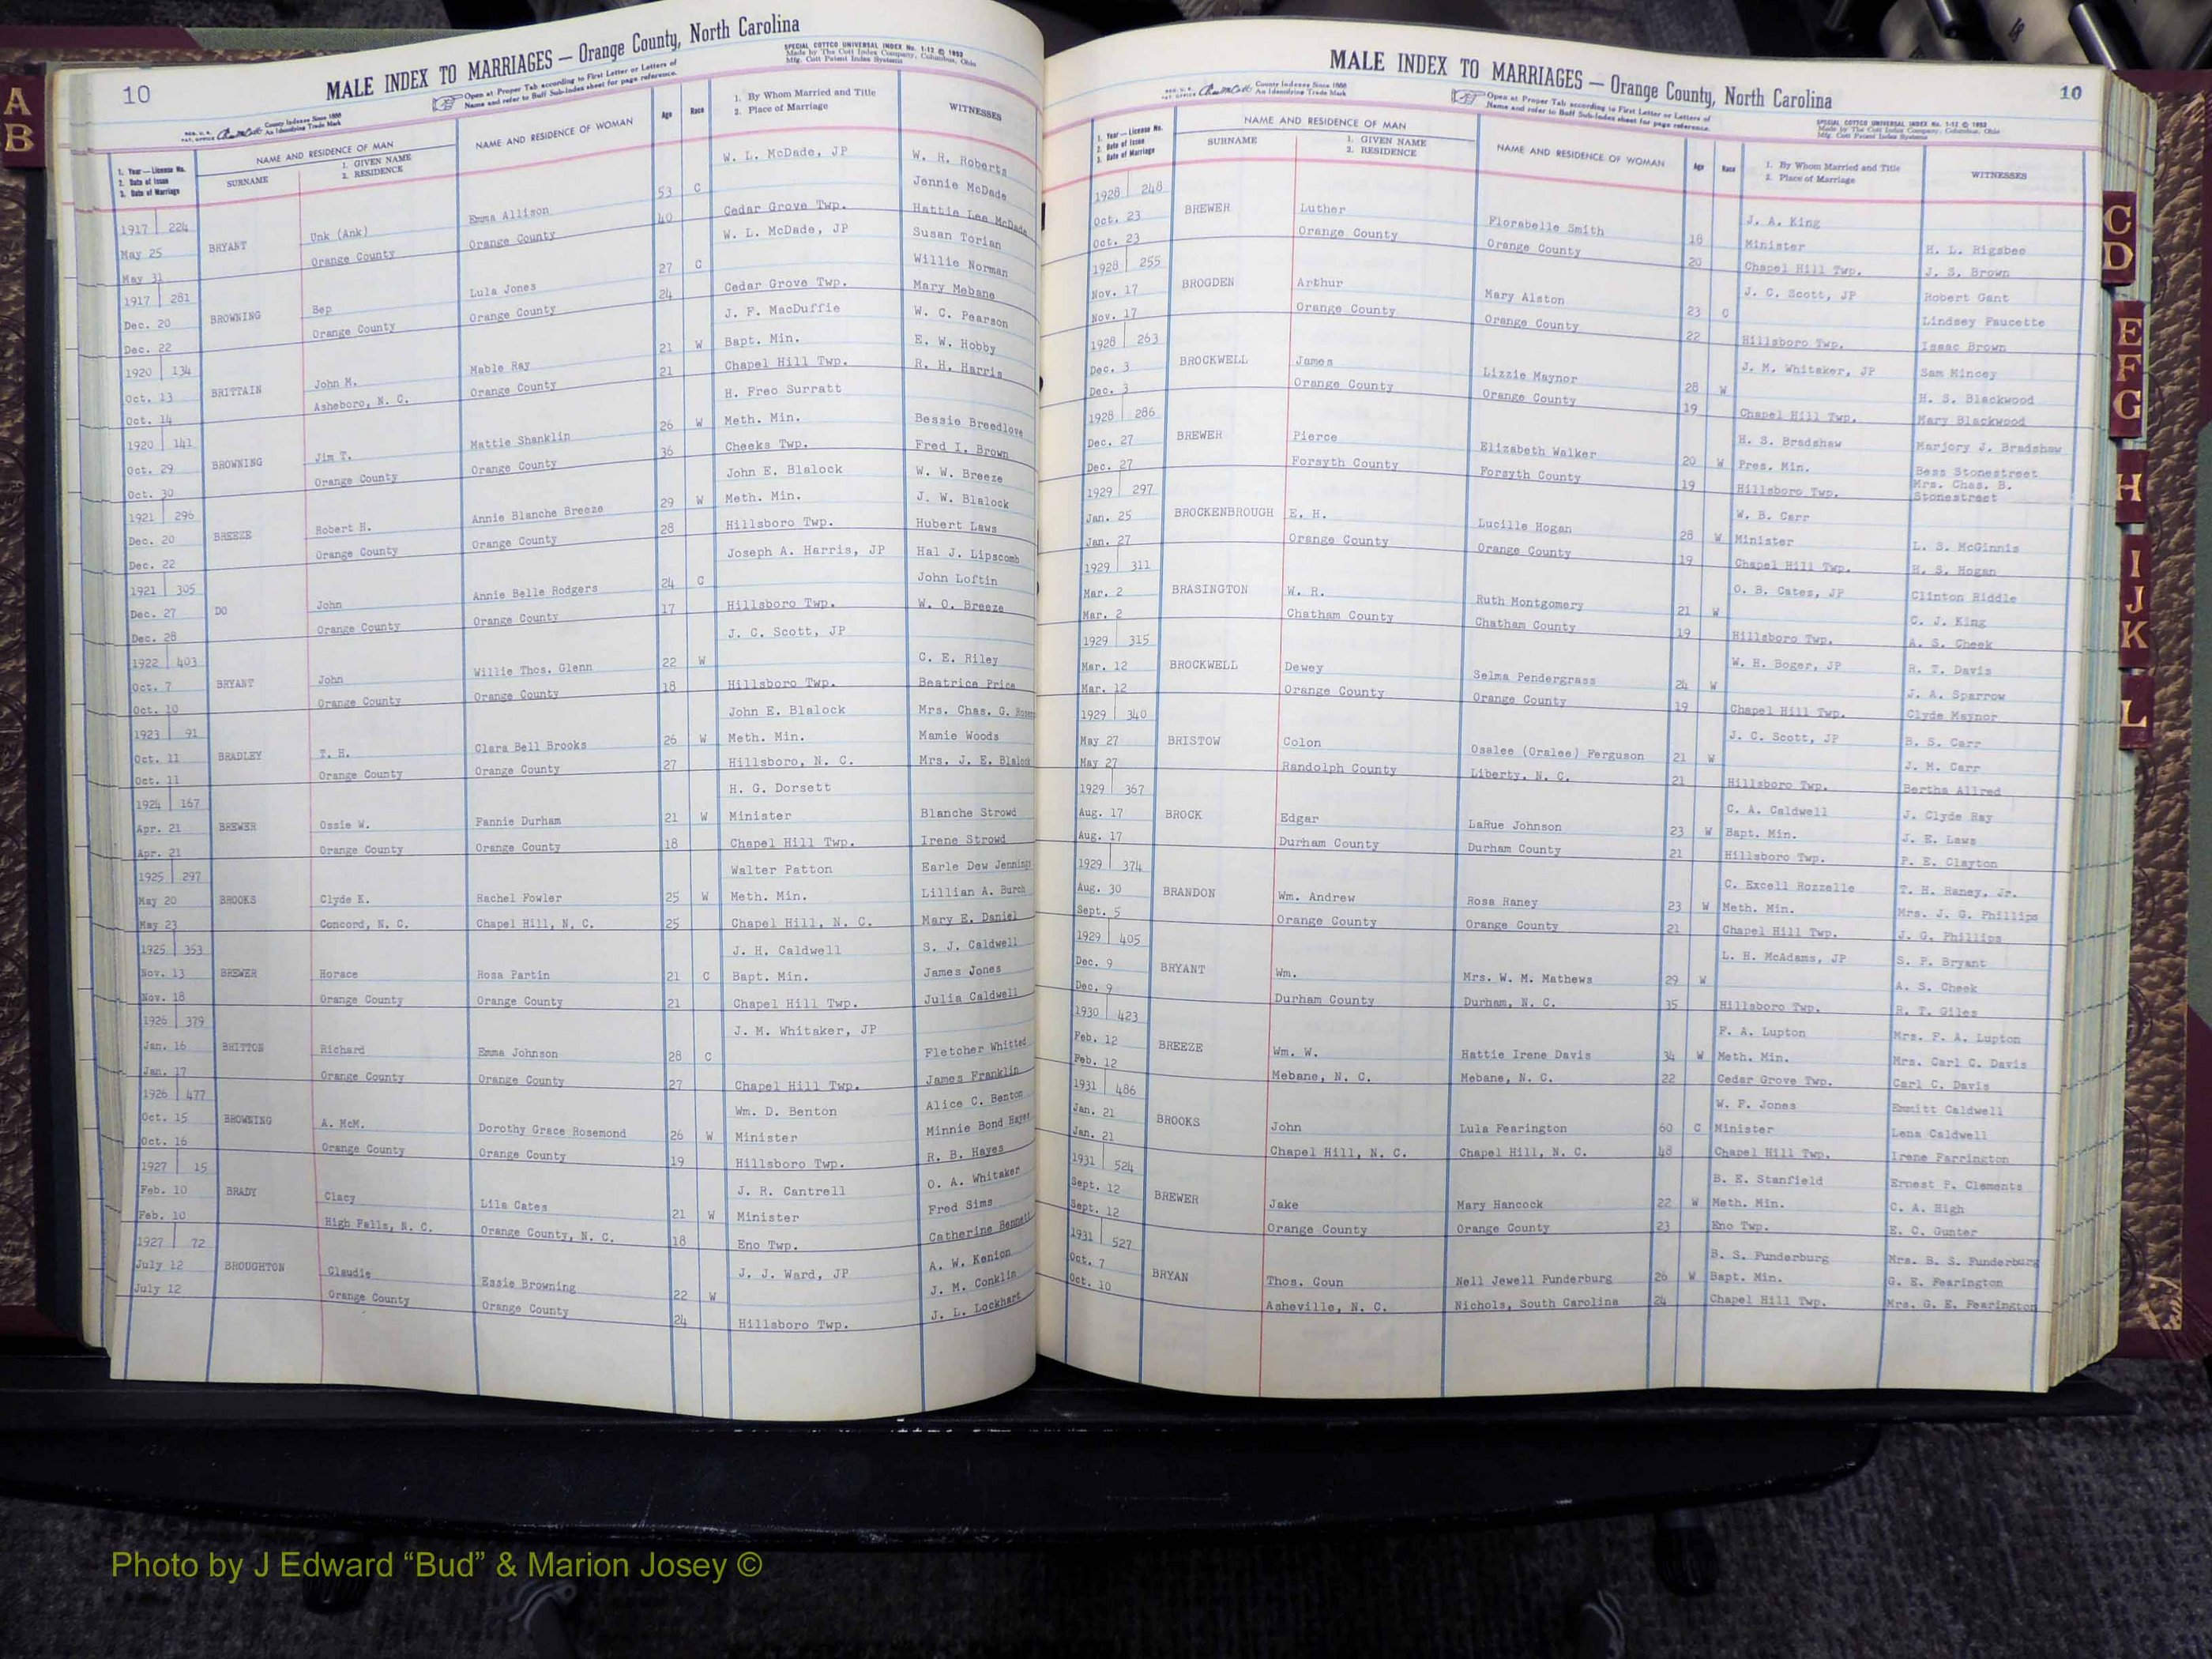 A
B
10
MALE INDEX TO MARRIAGES — Orange County, North Carolina
SPECIAL COTTCO UNIVERSAL INDEX No. 1-12 © 1952
Made by The Cott Index Company, Columbus, Ohio
Mfg. Cott Patent Index Systems
Open at Proper Tab according to First Letter or Letters of
Name and refer to Buff Sub-Index sheet for page reference.
County Indexes Since 1888
An Identifying Trade Mark
1. Year — License No.
2. Date of Issue
3. Date of Marriage
NAME AND RESIDENCE OF MAN
SURNAME
1. GIVEN NAME
2. RESIDENCE
NAME AND RESIDENCE OF WOMAN
Age
Race
1. By Whom Married and Title
2. Place of Marriage
WITNESSES
1917 224 W. L. McDade, JP W. R. Roberts
May 25 BRYANT Unk (Ank) Emma Allison 53 C Jennie McDade
May 31 Orange County Orange County 40 Cedar Grove Twp. Hattie Lee McDade
1917 281 W. L. McDade, JP Susan Torian
Dec. 20 BROWNING Bep Lula Jones 27 C Willie Norman
Dec. 22 Orange County Orange County 24 Cedar Grove Twp. Mary Mebane
1920 134 J. F. MacDuffie W. C. Pearson
Oct. 13 BRITTAIN John M. Mable Ray 21 W Bapt. Min. E. W. Hobby
Oct. 14 Asheboro, N. C. Orange County 21 Chapel Hill Twp. R. H. Harris
1920 141 H. Freo Surratt
Oct. 29 BROWNING Jim T. Mattie Shanklin 26 W Meth. Min. Bessie Breedlove
Oct. 30 Orange County Orange County 36 Cheeks Twp. Fred I. Brown
1921 296 John E. Blalock W. W. Breeze
Dec. 20 BREEZE Robert H. Annie Blanche Breeze 29 W Meth. Min. J. W. Blalock
Dec. 22 Orange County Orange County 28 Hillsboro Twp. Hubert Laws
1921 305 Joseph A. Harris, JP Hal J. Lipscomb
Dec. 27 DO John Annie Belle Rodgers 24 C John Loftin
Dec. 28 Orange County Orange County 17 Hillsboro Twp. W. O. Breeze
1922 403 J. C. Scott, JP
Oct. 7 BRYANT John Willie Thos. Glenn 22 W C. E. Riley
Oct. 10 Orange County Orange County 18 Hillsboro Twp. Beatrice Price
1923 91 John E. Blalock Mrs. Chas. G.
Oct. 11 BRADLEY T. H. Clara Bell Brooks 26 W Meth. Min. Mamie Woods
Oct. 11 Orange County Orange County 27 Hillsboro, N. C. Mrs. J. E. Blalock
1924 167 H. G. Dorsett
Apr. 21 BREWER Ossie W. Fannie Durham 21 W Minister Blanche Strowd
Apr. 21 Orange County Orange County 18 Chapel Hill Twp. Irene Strowd
1925 297 Walter Patton Earle Dew Jennings
May 20 BROOKS Clyde K. Rachel Fowler 25 W Meth. Min. Lillian A. Burch
May 23 Concord, N. C. Chapel Hill, N. C. 25 Chapel Hill, N. C. Mary E. Daniel
1925 353 J. H. Caldwell S. J. Caldwell
Nov. 13 BREWER Horace Rosa Partin 21 C Bapt. Min. James Jones
Nov. 18 Orange County Orange County 21 Chapel Hill Twp. Julia Caldwell
1926 379 J. M. Whitaker, JP
Jan. 16 BRITTON Richard Emma Johnson 28 C Fletcher Whitted
Jan. 17 Orange County Orange County 27 Chapel Hill Twp. James Franklin
1926 477 Wm. D. Benton Alice C. Benton
Oct. 15 BROWNING A. McM. Dorothy Grace Rosemond 26 W Minister Minnie Bond Hayes
Oct. 16 Orange County Orange County 19 Hillsboro Twp. R. B. Hayes
1927 15 J. R. Cantrell O. A. Whitaker
Feb. 10 BRADY Clacy Lila Cates 21 W Minister Fred Sims
Feb. 10 High Falls, N. C. Orange County, N. C. 18 Eno Twp. Catherine Bennett
1927 72 J. J. Ward, JP A. W. Kenion
July 12 BROUGHTON Claudie Essie Browning 22 W J. M. Conklin
July 12 Orange County Orange County 24 Hillsboro Twp. J. L. Lockhart
MALE INDEX TO MARRIAGES — Orange County, North Carolina
10
County Indexes Since 1888
An Identifying Trade Mark
Open at Proper Tab according to First Letter or Letters of
Name and refer to Buff Sub-Index sheet for page reference.
SPECIAL COTTCO UNIVERSAL INDEX No. 1-12 © 1952
Made by The Cott Index Company, Columbus, Ohio
Mfg. Cott Patent Index Systems
1. Year — License No.
2. Date of Issue
3. Date of Marriage
NAME AND RESIDENCE OF MAN
SURNAME
1. GIVEN NAME
2. RESIDENCE
NAME AND RESIDENCE OF WOMAN
Age
Race
1. By Whom Married and Title
2. Place of Marriage
WITNESSES
1928 248 J. A. King
Oct. 23 BREWER Luther Florabelle Smith 18 Minister H. L. Rigsbee
Oct. 23 Orange County Orange County 20 Chapel Hill Twp. J. S. Brown
1928 255 J. C. Scott, JP Robert Gant
Nov. 17 BROGDEN Arthur Mary Alston 23 C Lindsey Faucette
Nov. 17 Orange County Orange County 22 Hillsboro Twp. Isaac Brown
1928 263 J. M. Whitaker, JP Sam Mincey
Dec. 3 BROCKWELL James Lizzie Maynor 28 W H. S. Blackwood
Dec. 3 Orange County Orange County 19 Chapel Hill Twp. Mary Blackwood
1928 286 H. S. Bradshaw Marjory J. Bradshaw
Dec. 27 BREWER Pierce Elizabeth Walker 20 W Pres. Min. Bess Stonestreet
Dec. 27 Forsyth County Forsyth County 19 Hillsboro Twp. Mrs. Chas. B.
Stonestreet
1929 297 W. B. Carr
Jan. 25 BROCKENBROUGH E. H. Lucille Hogan 28 W Minister L. S. McGinnis
Jan. 27 Orange County Orange County 19 Chapel Hill Twp. H. S. Hogan
1929 311 O. B. Cates, JP Clinton Riddle
Mar. 2 BRASINGTON W. R. Ruth Montgomery 21 W C. J. King
Mar. 2 Chatham County Chatham County 19 Hillsboro Twp. A. S. Cheek
1929 315 W. H. Boger, JP R. T. Davis
Mar. 12 BROCKWELL Dewey Selma Pendergrass 24 W J. A. Sparrow
Mar. 12 Orange County Orange County 19 Chapel Hill Twp. Clyde Maynor
1929 340 J. C. Scott, JP B. S. Carr
May 27 BRISTOW Colon Osalee (Oralee) Ferguson 21 W J. M. Carr
May 27 Randolph County Liberty, N. C. 21 Hillsboro Twp. Bertha Allred
1929 367 C. A. Caldwell J. Clyde Ray
Aug. 17 BROCK Edgar LaRue Johnson 23 W Bapt. Min. J. E. Laws
Aug. 17 Durham County Durham County 21 Hillsboro Twp. P. E. Clayton
1929 374 C. Excell Rozzelle T. H. Raney, Jr.
Aug. 30 BRANDON Wm. Andrew Rosa Raney 23 W Meth. Min. Mrs. J. G. Phillips
Sept. 5 Orange County Orange County 21 Chapel Hill Twp. J. G. Phillips
1929 405 L. H. McAdams, JP S. P. Bryant
Dec. 9 BRYANT Wm. Mrs. W. M. Mathews 29 W A. S. Cheek
Dec. 9 Durham County Durham, N. C. 35 Hillsboro Twp. R. T. Giles
1930 423 F. A. Lupton Mrs. F. A. Lupton
Feb. 12 BREEZE Wm. W. Hattie Irene Davis 34 W Meth. Min. Mrs. Carl C. Davis
Feb. 12 Mebane, N. C. Mebane, N. C. 22 Cedar Grove Twp. Carl C. Davis
1931 486 W. F. Jones Emmitt Caldwell
Jan. 21 BROOKS John Lula Fearington 60 C Minister Lena Caldwell
Jan. 21 Chapel Hill, N. C. Chapel Hill, N. C. 48 Chapel Hill Twp. Irene Farrington
1931 524 B. E. Stanfield Ernest P. Clements
Sept. 12 BREWER Jake Mary Hancock 22 W Meth. Min. C. A. High
Sept. 12 Orange County Orange County 23 Eno Twp. E. C. Gunter
1931 527 B. S. Funderburg Mrs. B. S. Funderburg
Oct. 7 BRYAN Thos. Coun Nell Jewell Funderburg 26 W Bapt. Min. G. E. Fearington
Oct. 10 Asheville, N. C. Nichols, South Carolina 24 Chapel Hill Twp. Mrs. G. E. Fearington
C
D
E
F
G
H
I
J
K
L
Photo by J Edward “Bud” & Marion Josey ©